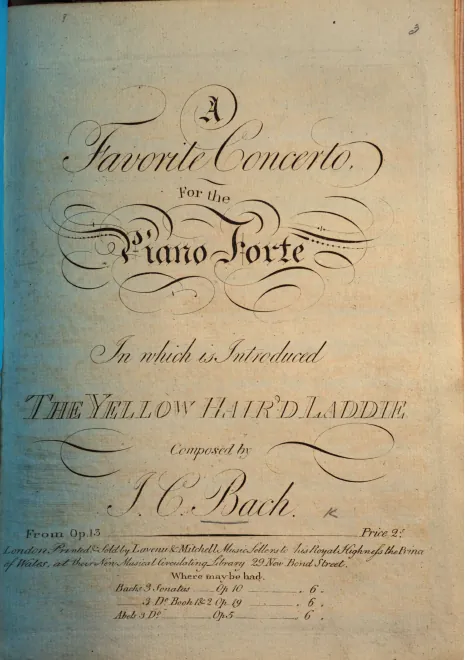 3
A
Favorite Concerto.
For the
Piano Forte
In which is Introduced
THE YELLOW HAIR'D LADDIE
Composed by
J. C. Bach.
From Op. 13 Price 2s.
London Printed & Sold by Lavenu & Mitchell Music Sellers to his Royal Highness the Prince
of Wales, at their New Musical Circulating Library 29 New Bond Street.
Where may be had.
Bachs 3 Sonatas Op 10 . 6 .
3 Do. Book 1 & 2 Op. 19 . 6 .
Abels 3 Do. Op 5 6 .